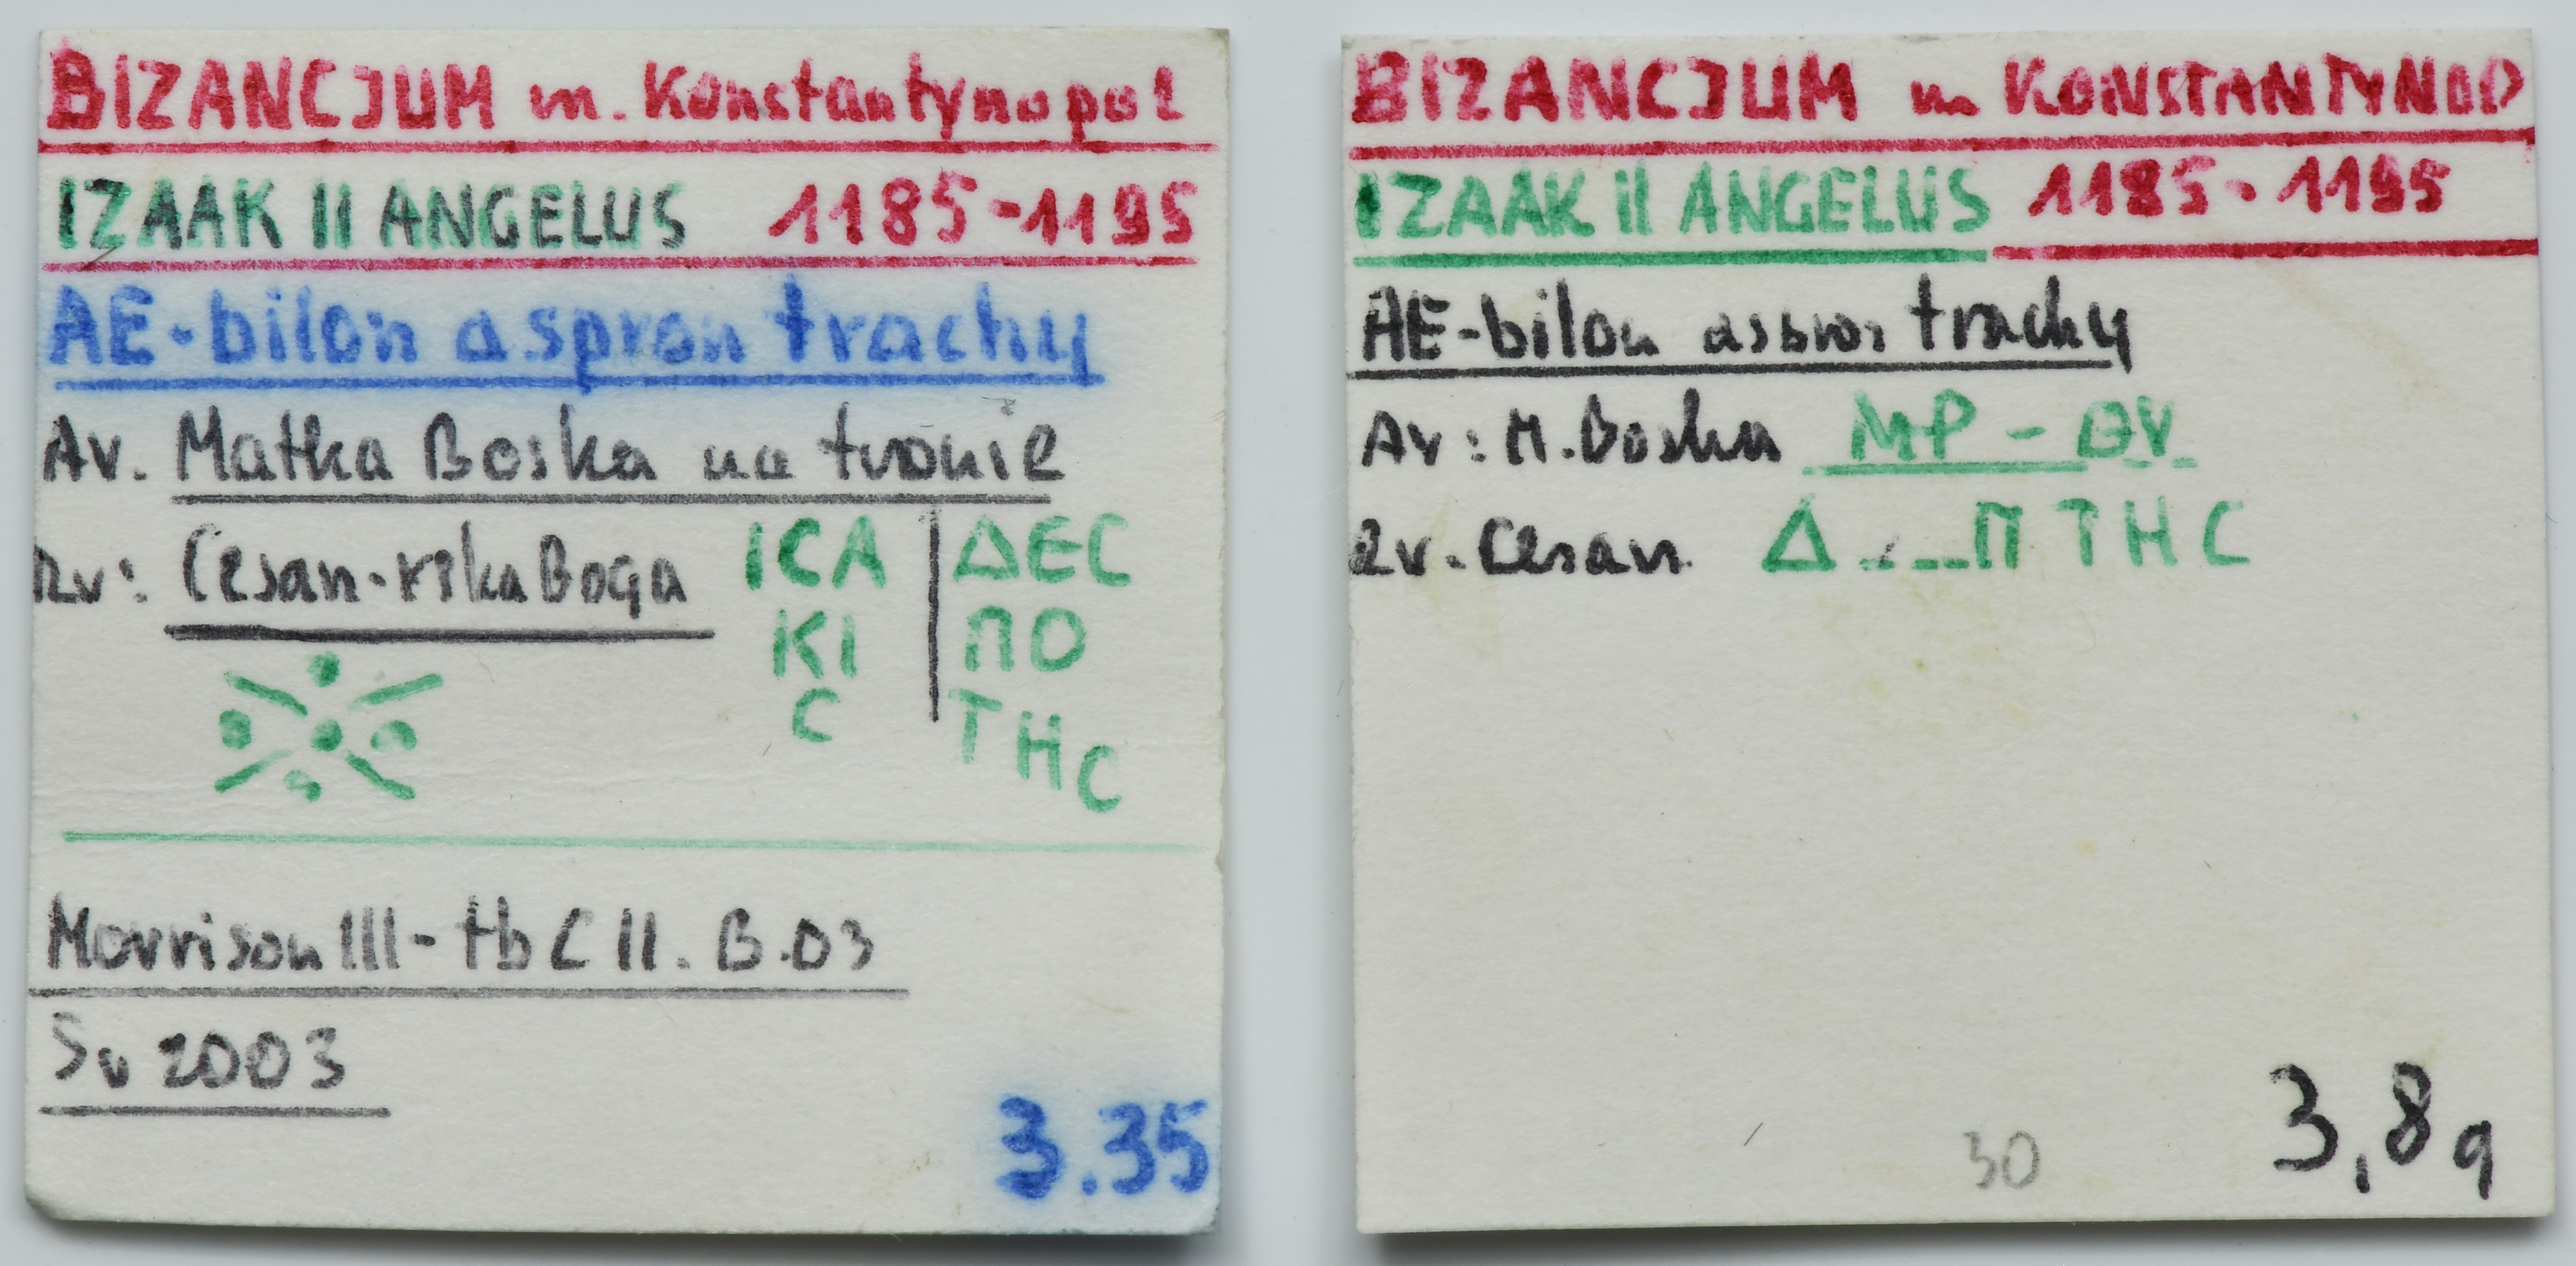 BIZANCJUM m. Konstantynopol
IZAAK II ANGELUS 1185-1195
AE-bilon aspron trachy
Av. Matka Boska na tronie
Rv: Cesarz-ręka Boga ICA | ΔEC
KI ΠO
C THC
Morrison III-tb C II. B.03
Sv 2003
3.35
BIZANCJUM m KONSTANTYNOP
IZAAK II ANGELUS 1185-1195
AE-bilon aspron trachy
Av: M.Boska MP - ΘV
Rv. Cesarz Δ...ΠTHC
30
3,8g